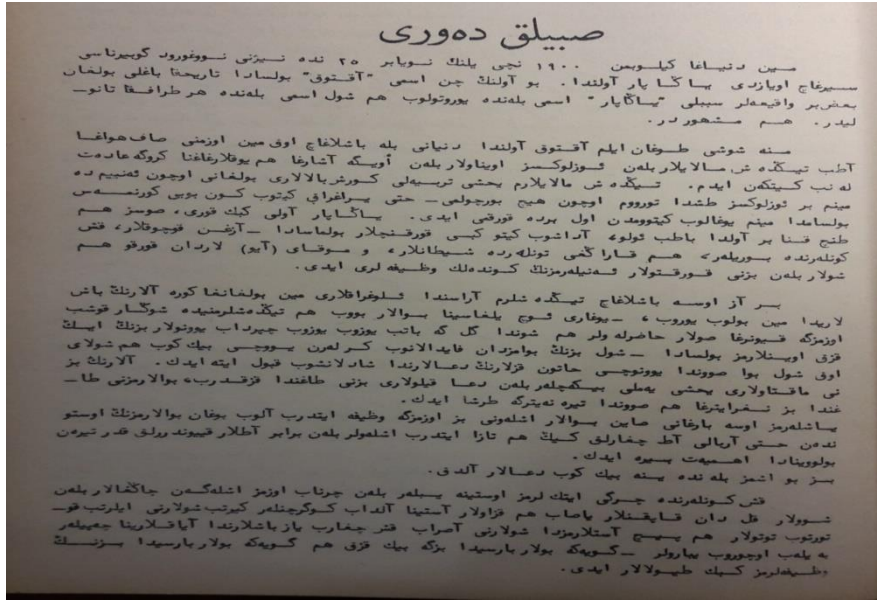 صبيلق دەورى
مين دنياغا كيلوبمن ١٩٠٠ نچى يلنڭ نويابر ٢٥ ندە نيزنى نووغورود گوبيرناسى
سيرغاچ اويازدى ياڭا پار آولندا. بو آولنڭ چن اسمى "آقتوق" بولسادا تاريحقا باغلى بولغان
بعض بر واقيعەلر سببلى "ياڭاپار" اسمى بلەندە يوروتولوب هم شول اسمى بلەندە هر طرافقا تانو-
ليدر. هم مشهور در.
منە شوشى طوغان ايلم آقتوق آولندا دنيانى بلە باشلاغاچ اوق مين اوزمنى صاف هواغا
آطب تيڭدە ش مالايلار بلەن ئوزلوكسز اويناولار بلەن آويگە آشارغا هم يوقلارغاغنا كروگە عادەت
لە نب كيتكەن ايدم. تيڭدە ش مالايلارم يحشى تربيەلى كورش بالالارى بولغانى اوچون ئەنييم دە
مينم بر ئوزلوكسز طشدا تورووم اوچون هيچ بورچولمى - حتى يراغراق كيتوب كون بويى كورنمەس
بولسامدا مينم يوغالوب كيتوومدن اول بردە قورقمى ايدى. ياڭاپار آولى كبك قورى، صوسز هم
طنچ قنا بر آولدا باطب ئولو، آداشوب كيتو كبى قورقنچلار بولماسادا - آزغن قوچوقلار، قش
كونلەرندە بوريلەر، هم قاراڭغى تونلەردە شيطانلار، و موقاى (آيو) لاردان قورقو هم
شولار بلەن بزنى قورقتولار ئەنيلەرمزنڭ كوندەلك وظيفە لرى ايدى.
بر آز اوسە باشلاغاچ تيڭدە شلرم آراسندا ئلوغراقلارى مين بولغانغا كورە آلارنڭ باش
لاريدا مين بولوب يوروب، - يوغارى ئوچ يلغاسينا بوالار بووب هم تيڭدەشلرمنيدە شوڭار قوشب
اوزمزگە قيونرغا صولار حاضرلە ولر هم شوندا كل كە باتب يوزوب يوزوب چيرداب يووتولار بزنڭ ايڭ
قزق اوينلارمز بولسادا - شول بزنڭ بوامزدان فايدالانوب كر لەرن يووچى بيك كوب هم شولاى
اوق شول بوا صووندا يووتوچى حاتون قزلارنڭ دعالارندا شادلانشوب قبول ايتە ايدك. آلارنڭ بز
نى ماقتاولارى يحشى يەملى بيڭچەلر بلەن دعا قيلولارى بزنى طاغندا قزقدرب، بوالارمزنى طا-
غندا بز نغرايترغا هم صووندا تيرە نەيترگە طرشا ايدك.
ياشلەرمز اوسە بارغانى صاين بوالار اشلەونى بز اوزمزگە وظيفە ايتدرب آلوب بوغان بوالارمزنڭ اوستو
ندەن حتى آربالى آط چغارلق كبك هم تازا ايتدرب اشلەولر بلەن برابر آطلار قييوندررلق قدر تيرەن
بولووينادا اهميەت بيرە ايدك.
بز بو اشمز بلە ندە ينە بيك كوب دعالار آلدق.
قش كونلەرندە چرگى ايتك لرمز اوستينە يبلەر بلەن چرناب اوزمز اشلەگەن چاڭغالار بلەن
شوولار قل دان قاپقنلار ياصاب هم قزاولار آستينا آلداب كوگرچنلەر كيرتب شولارنى ايلرتب قو-
تورتوب توتولار هم بيچ آستلارمزدا شولارنى آصراب قش چغارب ياز باشلارندا آياقلارينا چەييلەر
بە يلەب اوچوروب يبارولر - گوييەكە بولار بارسيدا بزگە بيك قزق هم گوييەكە بولار بارسيدا بزنڭ
وظيفەلرمز كبك طيولالار ايدى.